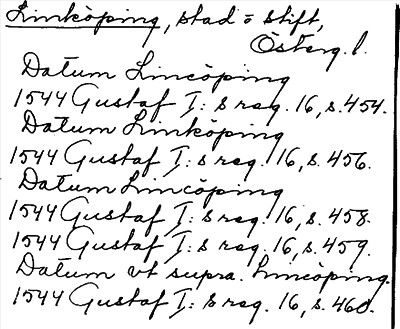 Linköping, stad o stift,
Österg. l.
Datum Lincöping
1544 Gustaf I: s reg. 16, s. 454.
Datum Linköping
1544 Gustaf I: s reg. 16, s. 456.
Datum Lincöping
1544 Gustaf I: s reg. 16, s. 458.
1544 Gustaf I: s reg. 16, s. 459.
Datum vt supra. Lincöping.
1544 Gustaf I: s reg. 16, s. 460.